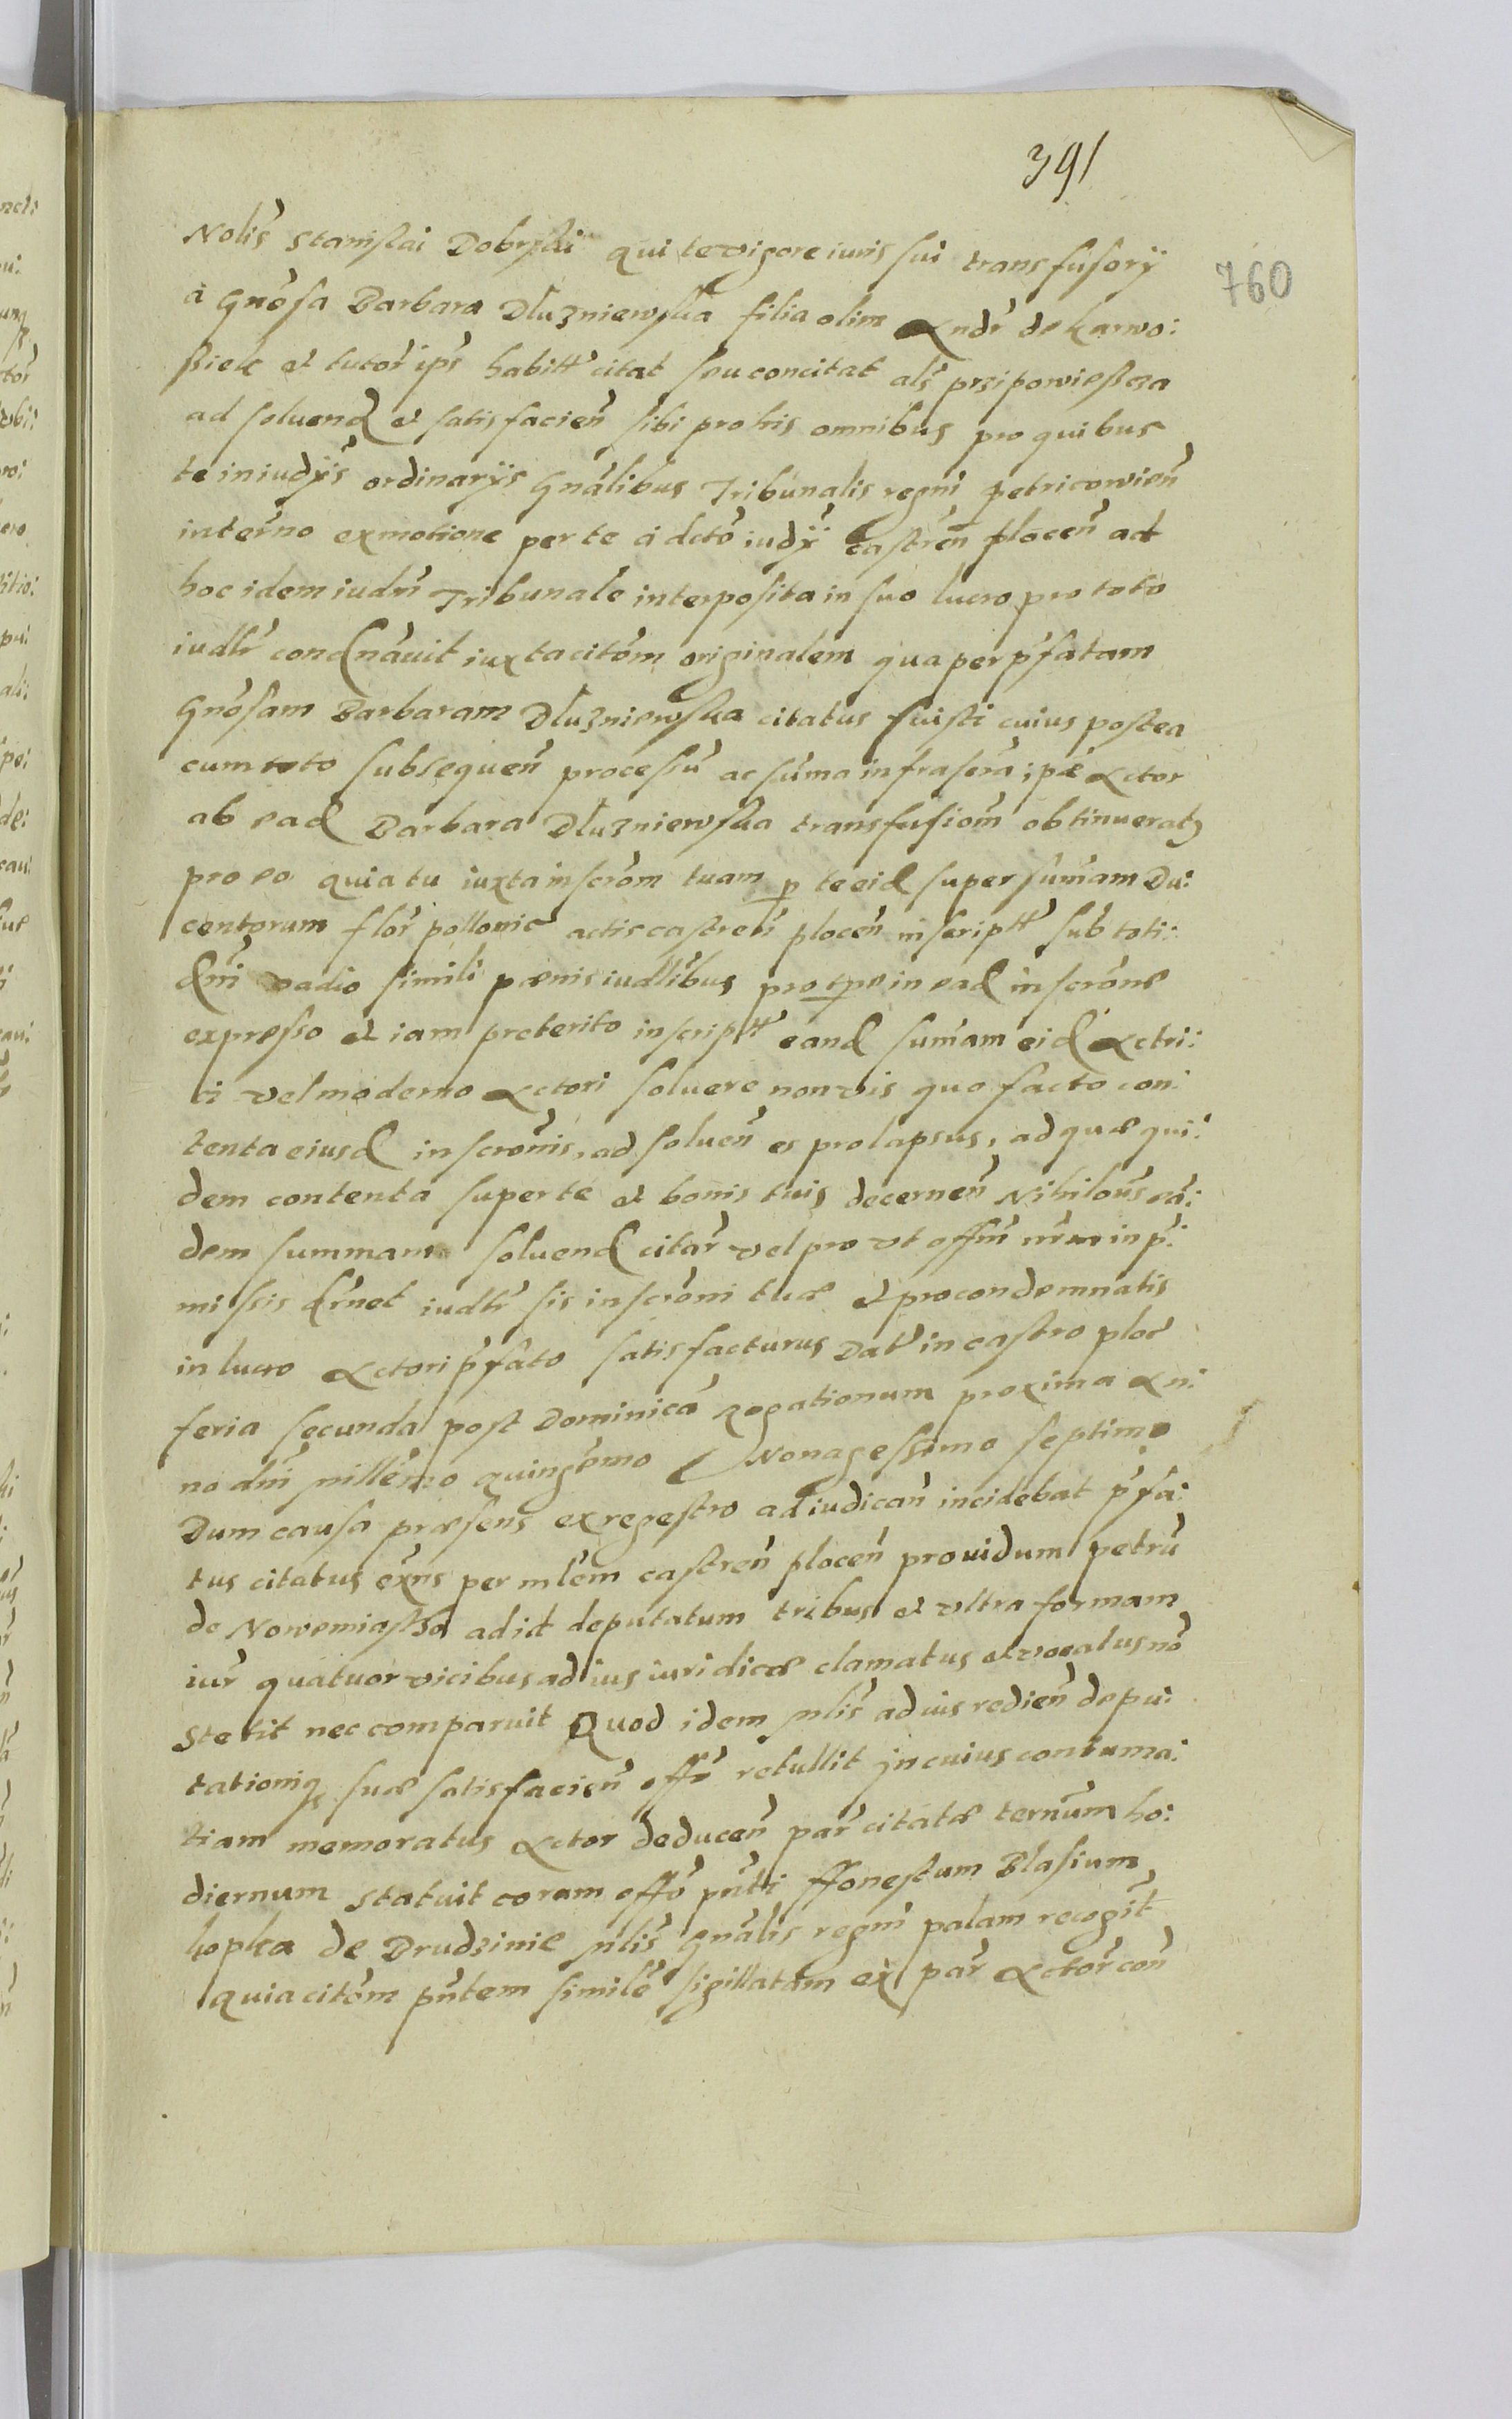 391
760
Nolis̃ Stanislai Dobrski qui te vigore iuris sui transfusorÿ
à Gnõsa Barbara Dłuzniewska filia olim Andr̃ de Karwo:
siek et tutor̃ ip̃s habitt citat seu concitat als̃ przipowiescza
ad soluend et satisfacien̄ sibi pro his omnibus pro quibus
te in iudÿs̃ ordinarÿs Gnãlibus Tribunalis regni petricowien̄
inter̃no ex motione per te à dcto iudÿ castren̄ plocen̄ ad
hoc idem iudm̃ Tribunale interposita in suo lucro pro toto
iudlr̃ condnãvit iuxta citõm originalem qua per p̃fatam
Gnõsam Barbaram Dłuzniewska citatus fuisti cuius postea
cum toto subsequen̄ processũ ac sũma infrascra; pã Actor
ab ead Barbara Dłuzniewska transfusiom̃ obtinuerat
pro eo quia tu iuxta inscrõm tuam p teeid super sum̃am Du:
centorum flor̃ pollonic actis castren̄ plocen̄ inscriptt sub toti:
dm̃ vadio simili pœnis iudlibus pro tpe in ead inscrõne
expresso et iam preterito inscriptt eand sum̃am eid Actri:
ci vel moderno Actori soluere non vis quo facto con:
tenta eiusd inscrõnis, ad soluen̄ es prolapsus, ad quæ qui:
dem contenta super te et bonis tuis decernen̄ Nihilom̃s eã:
dem summam soluend citar̃ vel pro ut offm̃ nrm̃ in p̃:
missis drnet iudlr̃ sis inscrõni tuæ et pro condemnatis
in lucro Actori p̃fato satisfacturus Dat̃ in castro ploc
feria secunda post Dominicã Rogationum proxima An:
no dni millẽmo quingẽmo Nonagessimo septimo
Dum causa præsens ex regestro ad iudican̄ incidebat p̃fa:
tus citatus exñs per mlẽm castren̄ plocen̄ prouidum petrũ
de Nowemiastho ad id deputatum tribus et vltra formam
iur̃ quatuor vicibus ad ius iuridicæ clamatus et vocatus nõ
stetit nec comparuit Quod idem mlis̃ ad ius redien̄ depu:
tationiq suæ satisfacien̄ offo retullit jn cuius contuma:
tiam memoratus Actor deducen̄ par̃ citatæ ternum ho:
diernum statuit coram offo pnti Honestum Blasium
kopka de Drudzinie mlis̃ Gnãlis regni palam recogit̃
quia citõm pñtem similẽ sigillatam ex par̃ Actor̃ con̄